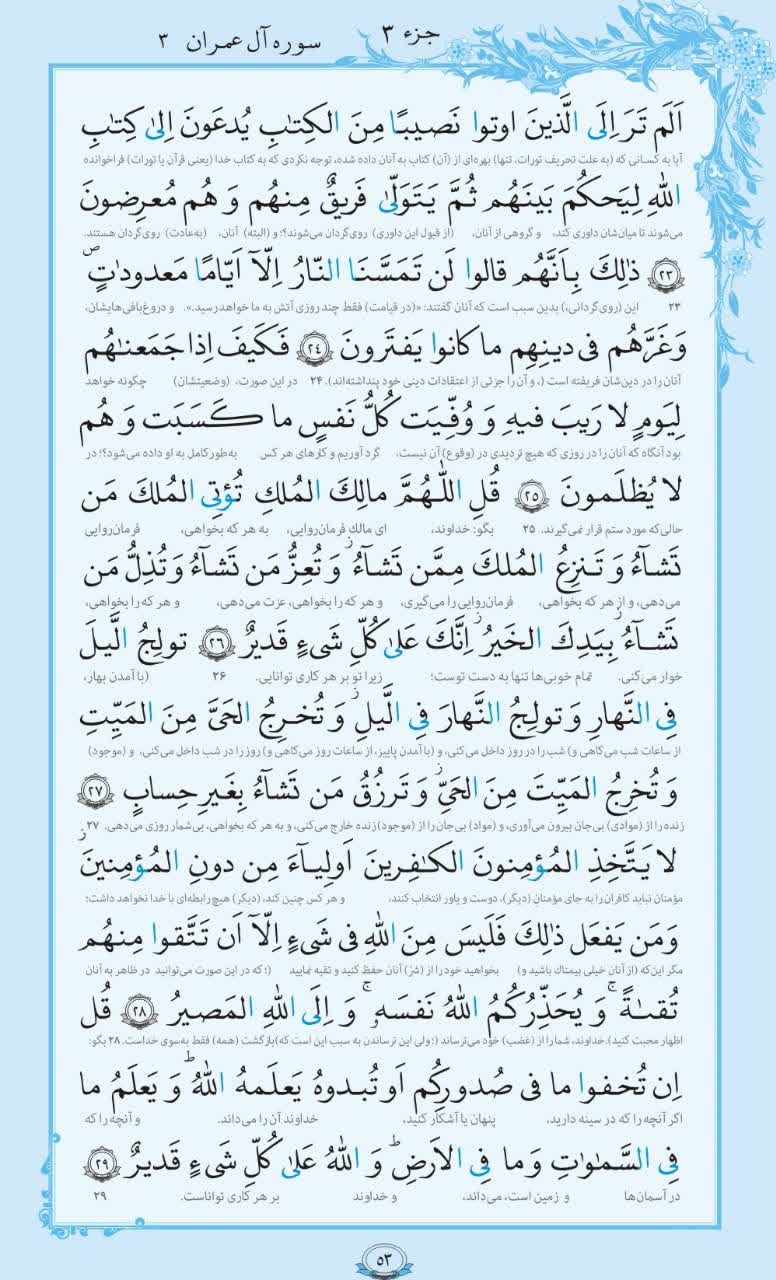 جزء ۳
سوره آل عمران ۳
اَلَم تَرَ اِلَی الَّذینَ اوتوا نَصیبًا مِنَ الکِتٰبِ یُدعَونَ اِلیٰ کِتٰبِ
آیا به کسانی که (به علت تحریف تورات، تنها) بهره‌ای از (آن) کتاب به آنان داده شده، توجه نکردی که به کتاب خدا (یعنی قرآن یا تورات) فراخوانده
اللهِ لِیَحکُمَ بَینَهُم ثُمَّ یَتَوَلّیٰ فَریقٌ مِنهُم وَ هُم مُعرِضونَ
می‌شوند تا میان‌شان داوری کند، و گروهی از آنان، (از قبول این داوری) روی‌گردان می‌شوند؟! و (البته) آنان، (به‌عادت) روی‌گردان هستند.
﴿۲۳﴾ ذٰلِكَ بِاَنَّهُم قالوا لَن تَمَسَّنَا النّارُ اِلّآ اَیّامًا مَعدودٰتٍ ۖ
۲۳ این (روی‌گردانی،) بدین سبب است که آنان گفتند: «(در قیامت) فقط چند روزی آتش به ما خواهد رسید.». و دروغ‌بافی‌هایشان،
وَ غَرَّهُم فی دینِهِم ما کانوا یَفتَرونَ ﴿۲۴﴾ فَکَیفَ اِذا جَمَعنٰهُم
آنان را در دین‌شان فریفته است (، و آن را جزئی از اعتقادات دینی خود پنداشته‌اند). ۲۴ در این صورت، (وضعیتشان) چگونه خواهد
لِیَومٍ لا رَیبَ فیهِ وَ وُفِّیَت کُلُّ نَفسٍ ما کَسَبَت وَ هُم
بود آنگاه که آنان را در روزی که هیچ تردیدی در (وقوع) آن نیست، گرد آوریم و کارهای هر کس به‌طور کامل به او داده می‌شود؟؛ در
لا یُظلَمونَ ﴿۲۵﴾ قُلِ اللّٰهُمَّ مالِكَ المُلكِ تُؤتِی المُلكَ مَن
حالی‌که مورد ستم قرار نمی‌گیرند. ۲۵ بگو: خداوند، ای مالك فرمان‌روایی، به هر که بخواهی، فرمان‌روایی
تَشآءُ وَ تَنزِعُ المُلكَ مِمَّن تَشآءُ ز وَ تُعِزُّ مَن تَشآءُ وَ تُذِلُّ مَن
می‌دهی، و از هر که بخواهی، فرمان‌روایی را می‌گیری، و هر که را بخواهی، عزت می‌دهی، و هر که را بخواهی،
تَشآءُ ز بِیَدِكَ الخَیرُ ز اِنَّكَ عَلیٰ کُلِّ شَیءٍ قَدیرٌ ﴿۲۶﴾ تولِجُ الَّیلَ
خوار می‌کنی. تمام خوبی‌ها تنها به دست توست؛ زیرا تو بر هر کاری توانایی. ۲۶ (با آمدن بهار،
فِی النَّهارِ وَ تولِجُ النَّهارَ فِی الَّیلِ ز وَ تُخرِجُ الحَیَّ مِنَ المَیِّتِ
از ساعات شب می‌کاهی و) شب را در روز داخل می‌کنی، و (با آمدن پاییز، از ساعات روز می‌کاهی و) روز را در شب داخل می‌کنی، و (موجود)
وَ تُخرِجُ المَیِّتَ مِنَ الحَیِّ ز وَ تَرزُقُ مَن تَشآءُ بِغَیرِ حِسابٍ ﴿۲۷﴾
زنده را از (موادی) بی‌جان بیرون می‌آوری، و (مواد) بی‌جان را از (موجود) زنده خارج می‌کنی، و به هر که بخواهی، بی‌شمار روزی می‌دهی. ۲۷
لا یَتَّخِذِ المُؤمِنونَ الکٰفِرینَ اَولِیآءَ مِن دونِ المُؤمِنینَ ز
مؤمنان نباید کافران را به جای مؤمنان (دیگر)، دوست و یاور انتخاب کنند، و هر کس چنین کند، (دیگر) هیچ رابطه‌ای با خدا نخواهد داشت؛
وَ مَن یَفعَل ذٰلِكَ فَلَیسَ مِنَ اللهِ فی شَیءٍ اِلّآ اَن تَتَّقوا مِنهُم
مگر این‌که (از آنان خیلی بیمناك باشید و) بخواهید خود را از (شرّ) آنان حفظ کنید و تقیه نمایید (؛ که در این صورت می‌توانید در ظاهر به آنان
تُقىٰةً ۚ وَ یُحَذِّرُکُمُ اللهُ نَفسَه ۚ وَ اِلَی اللهِ المَصیرُ ﴿۲۸﴾ قُل
اظهار محبت کنید). خداوند، شما را از (غضب) خود می‌ترساند (؛ ولی این ترساندن به سبب این است که) بازگشت (همه) فقط به‌سوی خداست. ۲۸ بگو:
اِن تُخفوا ما فی صُدورِکُم اَو تُبدوهُ یَعلَمهُ اللهُ ط وَ یَعلَمُ ما
اگر آنچه را که در سینه دارید، پنهان یا آشکار کنید، خداوند آن را می‌داند. و آنچه را که
فِی السَّمٰوٰتِ وَ ما فِی الاَرضِ ط وَ اللهُ عَلیٰ کُلِّ شَیءٍ قَدیرٌ ﴿۲۹﴾
در آسمان‌ها و زمین است، می‌داند، و خداوند بر هر کاری تواناست. ۲۹
۵۳